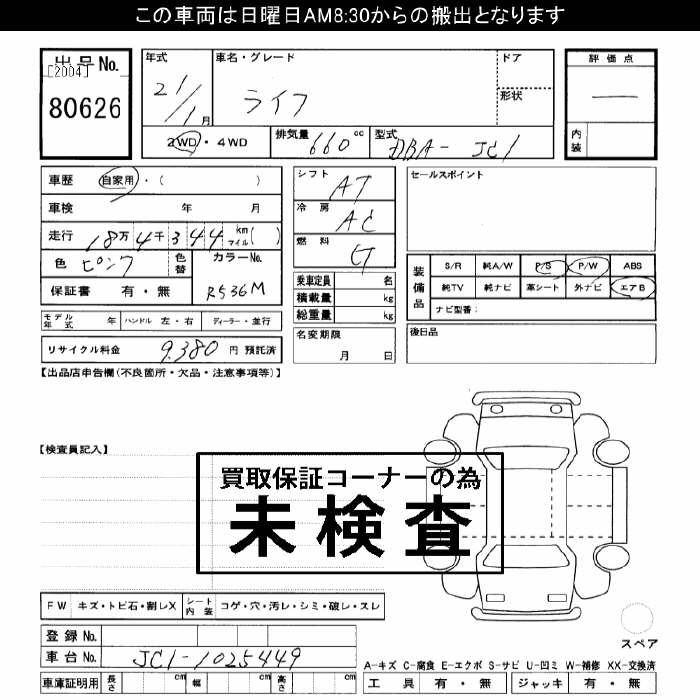 この車両は日曜日AM8:30からの搬出となります
出品No.
[2004]
80626
年式
21/1月
車名・グレード
ライフ
ドア
形状
2WD・4WD
排気量 660cc
型式 DBA-JC1
評価点
—
内装
車歴 自家用・( )
車検 年 月
走行 18万4千344 km マイル( )
色 ピンク 色替
カラーNo. R536M
保証書 有・無
モデル年式 年 ハンドル 左・右 ディーラー・並行
リサイクル料金 9,380円 預託済
シフト AT
冷房 AC
燃料 G
乗車定員 名
積載量 kg
総重量 kg
名変期限 月 日
セールスポイント
装備品
S/R 純A/W P/S P/W ABS
純TV 純ナビ 革シート 外ナビ エアB
ナビ型番:
後日品
【出品店申告欄(不良箇所・欠品・注意事項等)】
【検査員記入】
買取保証コーナーの為
未検査
FW キズ・トビ石・割レX シート内装 コゲ・穴・汚レ・シミ・破レ・スレ
登録No.
車台No. JC1-1025449
車庫証明用 長さ cm 幅 cm 高さ cm
スペア
A-キズ C-腐食 E-エクボ S-サビ U-凹ミ W-補修 XX-交換済
工具 有・無 ジャッキ 有・無